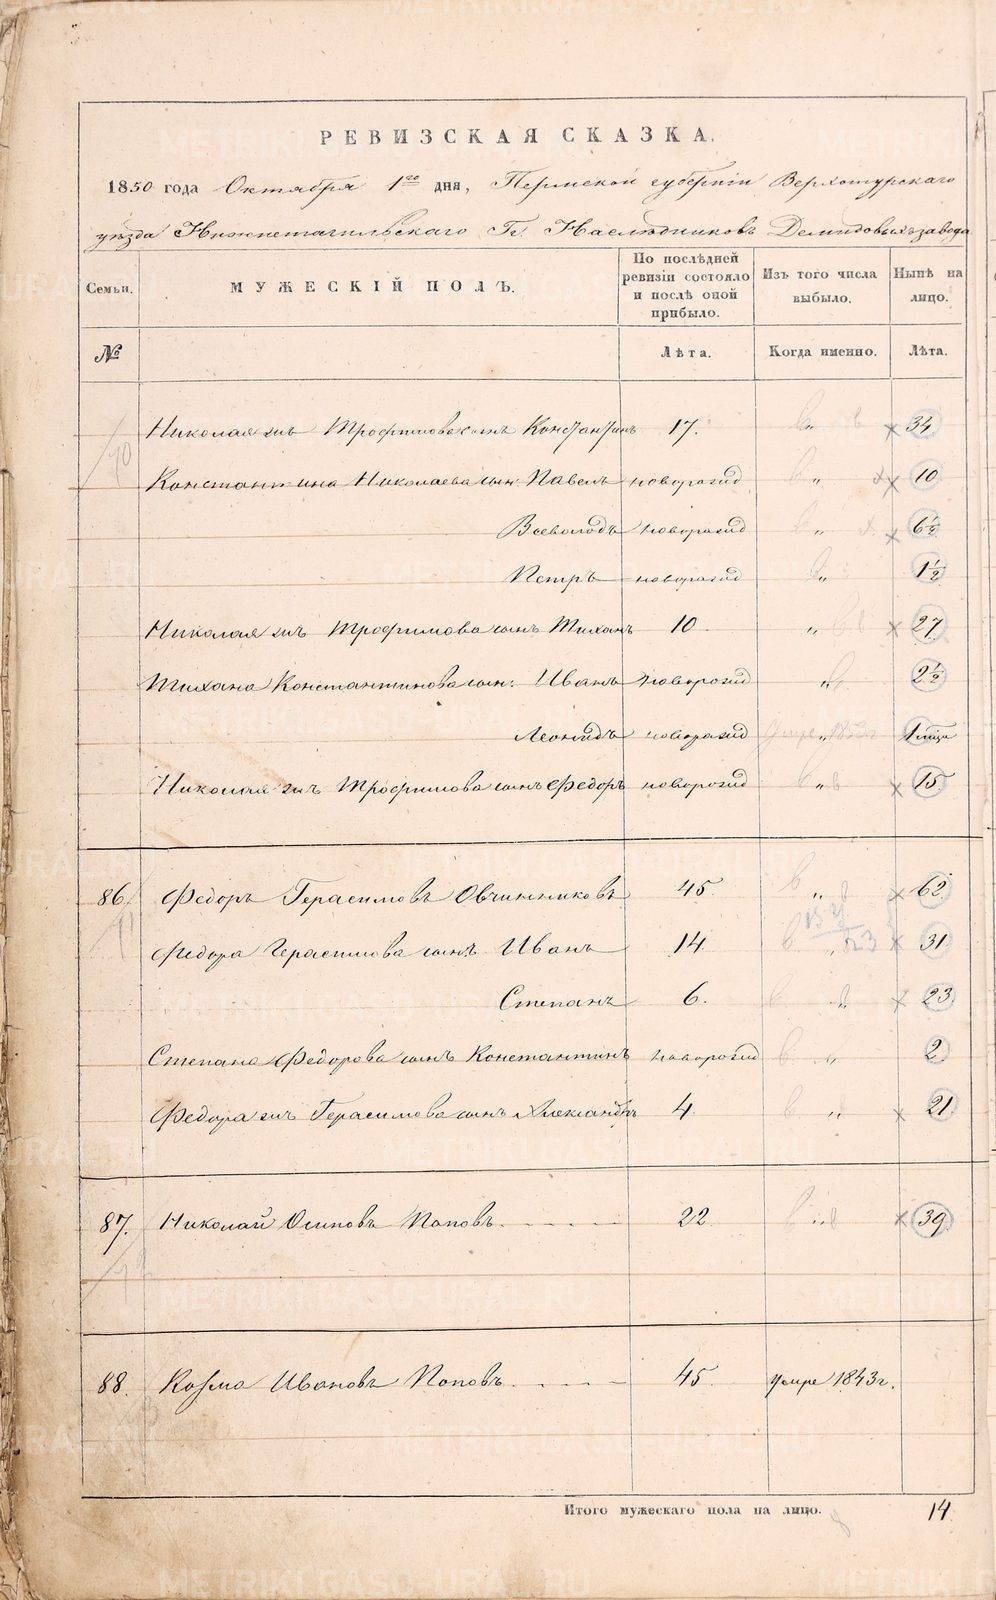 РЕВИЗСКАЯ СКАЗКА.
1850 года Октября 1го дня, Пермской губернiи Верхотурскаго
уѣзда Нижнетагильскаго Гг. Наслѣдниковъ Демидовыхъ завода
Семьи. МУЖЕСКIЙ ПОЛЪ. По послѣдней ревизiи состояло и послѣ оной прибыло. Изъ того числа выбыло. Нынѣ на лицо.
№ Лѣта. Когда именно. Лѣта.
Николая Трофимова сынъ Константинъ 17. " 34
Константина Николаева сын Павелъ новорожд " 10
Всеволодъ новорожд " 6½
Петръ новорожд " 1½
Николая Трофимова сынъ Тиханъ 10 " 27
Тихана Константинова сын. Иванъ новорожд " 2½
Леонидъ новорожд " 1 мѣся
Николая Трофимова сынъ Федоръ новорожд " 15
86. Федоръ Герасимовъ Овчинниковъ 45. " 62
Федора Герасимова сынъ Иванъ 14 " 31
Степанъ 6. " 23
Степана Федорова сынъ Константинъ новорожд " 2
Федора Герасимова сынъ Александръ 4 " 21
87. Николай Осиповъ Поповъ 22 " 39
88. Козма Ивановъ Поповъ 45. умре 1843 г.
Итого мужескаго пола на лицо. 14
METRIKI.GASO-URAL.RU